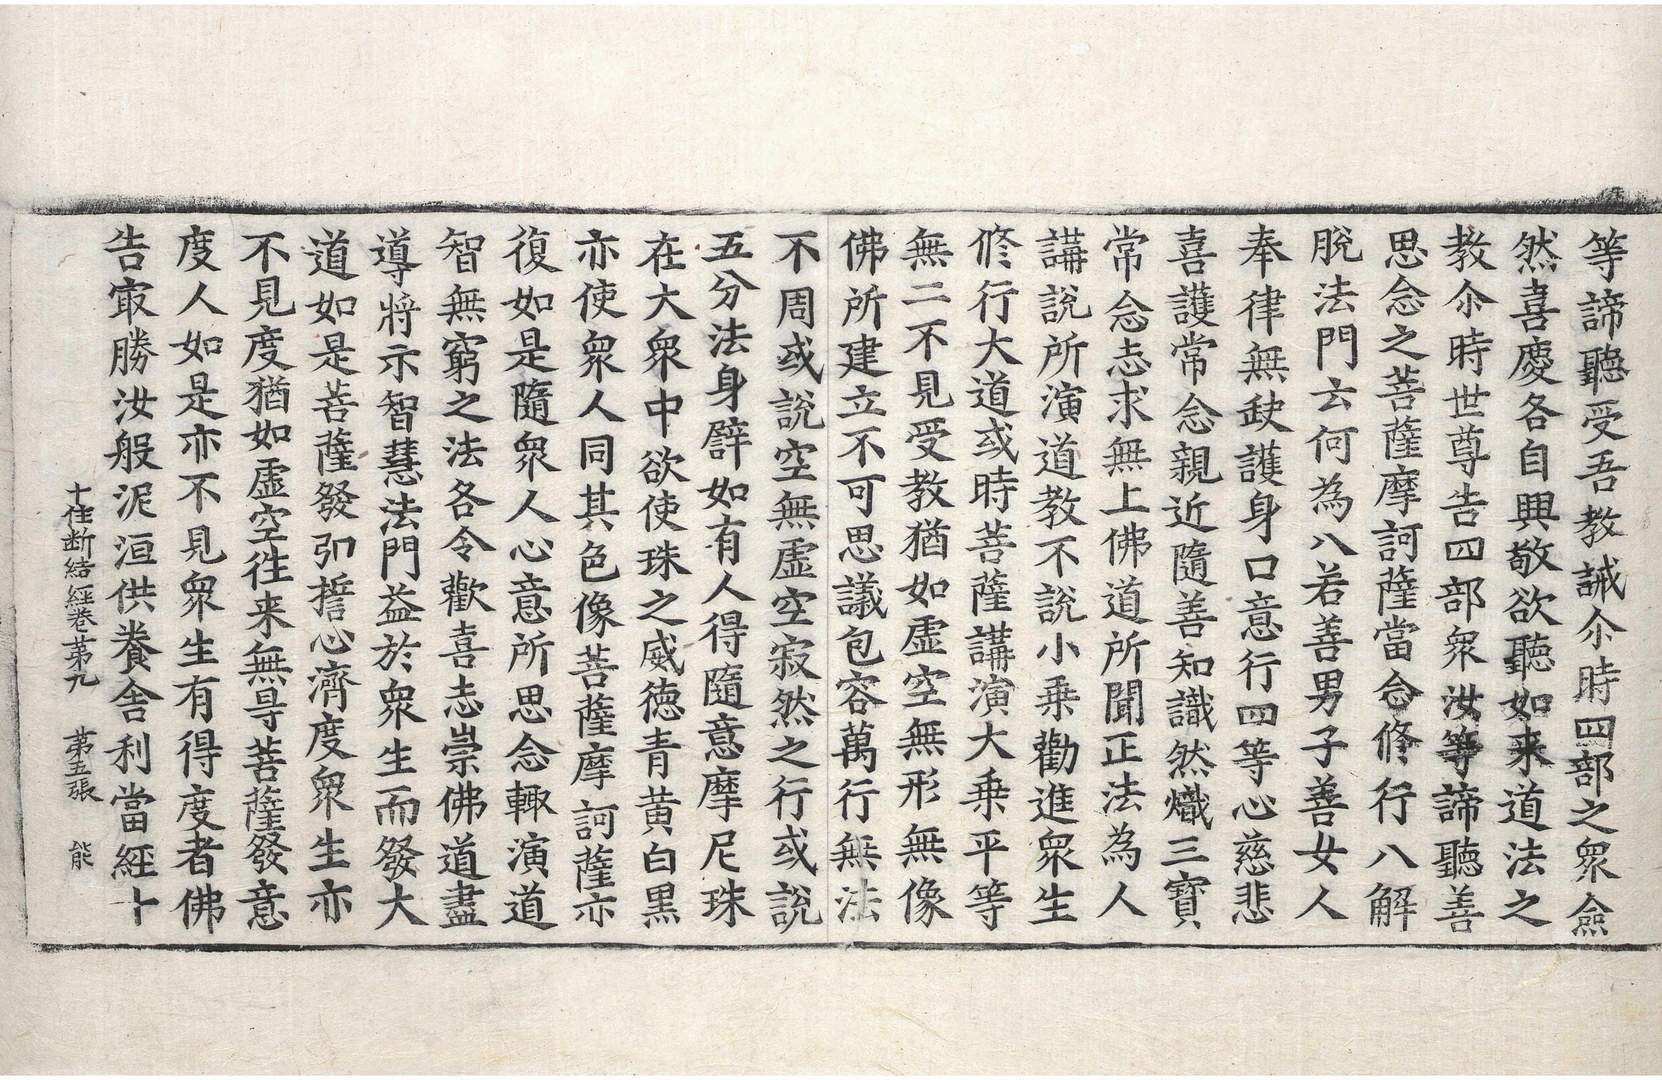 等諦聽受吾教誡尒時四部之衆僉
然喜慶各自興敬欲聽如来道法之
教尒時世尊告四部衆汝等諦聽善
思念之菩薩摩訶薩當念修行八解
脫法門云何為八若善男子善女人
奉律無缺護身口意行四等心慈悲
喜護常念親近隨善知識然熾三寶
常念志求無上佛道所聞正法為人
講說所演道教不說小乗勸進衆生
修行大道或時菩薩講演大乗平等
無二不見受教猶如虛空無形無像
佛所建立不可思議包容萬行無法
不周或說空無虛空寂然之行或說
五分法身譬如有人得隨意摩尼珠
在大衆中欲使珠之威德青黃白黑
亦使衆人同其色像菩薩摩訶薩亦
復如是隨衆人心意所思念輙演道
智無窮之法各令歡喜志崇佛道盡
導將示智慧法門益於衆生而發大
道如是菩薩發弘誓心濟度衆生亦
不見度猶如虛空往来無㝵菩薩發意
度人如是亦不見衆生有得度者佛
告冣勝汝般泥洹供養舍利當經十
十住斷結經卷第九 第五張 能